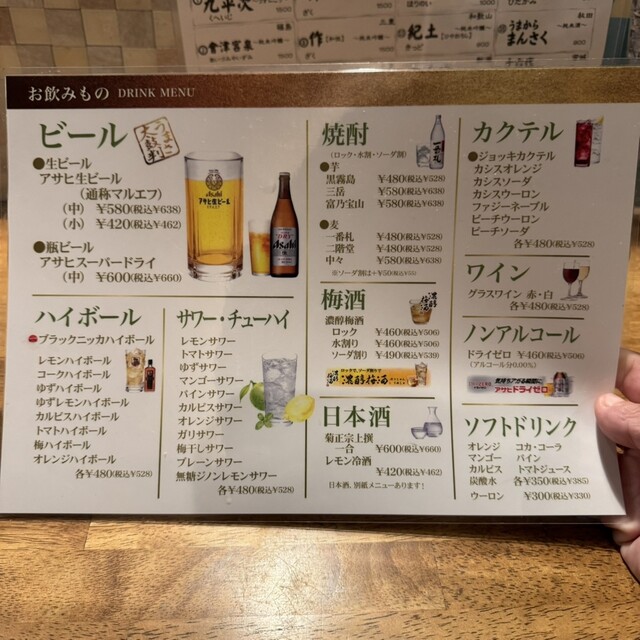 九平次
福島
會津宮泉
三重
作
和歌山
紀土
秋田
うまから
まんさく
お飲みもの DRINK MENU
ビール
うまさ
太鼓判
●生ビール
アサヒ生ビール
(通称マルエフ)
(中) ¥580(税込¥638)
(小) ¥420(税込¥462)
●瓶ビール
アサヒスーパードライ
(中) ¥600(税込¥660)
Asahi
アサヒ生ビール
Asahi
ハイボール
ブラックニッカハイボール
レモンハイボール
コークハイボール
ゆずハイボール
ゆずレモンハイボール
カルピスハイボール
トマトハイボール
梅ハイボール
オレンジハイボール
各¥480(税込¥528)
サワー・チューハイ
レモンサワー
トマトサワー
ゆずサワー
マンゴーサワー
パインサワー
カルピスサワー
オレンジサワー
ガリサワー
梅干しサワー
プレーンサワー
無糖ジンレモンサワー
各¥480(税込¥528)
焼酎
(ロック・水割・ソーダ割)
●芋
黒霧島 ¥480(税込¥528)
三岳 ¥580(税込¥638)
富乃宝山 ¥580(税込¥638)
●麦
一番札 ¥480(税込¥528)
二階堂 ¥480(税込¥528)
中々 ¥580(税込¥638)
※ソーダ割は+¥50(税込¥55)
梅酒
濃醇梅酒
ロック ¥460(税込¥506)
水割り ¥460(税込¥506)
ソーダ割り ¥490(税込¥539)
濃醇梅酒
日本酒
菊正宗上撰
一合 ¥600(税込¥660)
レモン冷酒
¥420(税込¥462)
日本酒、別紙メニューあります!
カクテル
●ジョッキカクテル
カシスオレンジ
カシスソーダ
カシスウーロン
ファジーネーブル
ピーチウーロン
ピーチソーダ
各¥480(税込¥528)
ワイン
グラスワイン 赤・白
各¥480(税込¥528)
ノンアルコール
ドライゼロ ¥460(税込¥506)
(アルコール分0.00%)
気持ちアガる瞬間に
アサヒドライゼロ
ソフトドリンク
オレンジ コカ・コーラ
マンゴー パイン
カルピス トマトジュース
炭酸水 各¥350(税込¥385)
ウーロン ¥300(税込¥330)